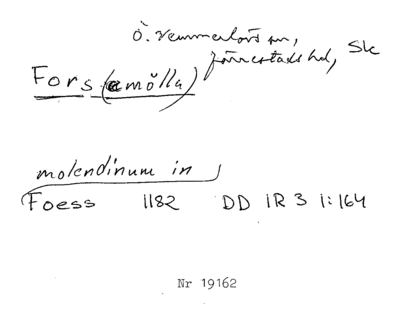 Ö. Vemmerlövs sn,
Järrestads hd, Sk
Fors (emölla)
molendinum in
Foess 1182 DD 1R 3 1:164
Nr 19162